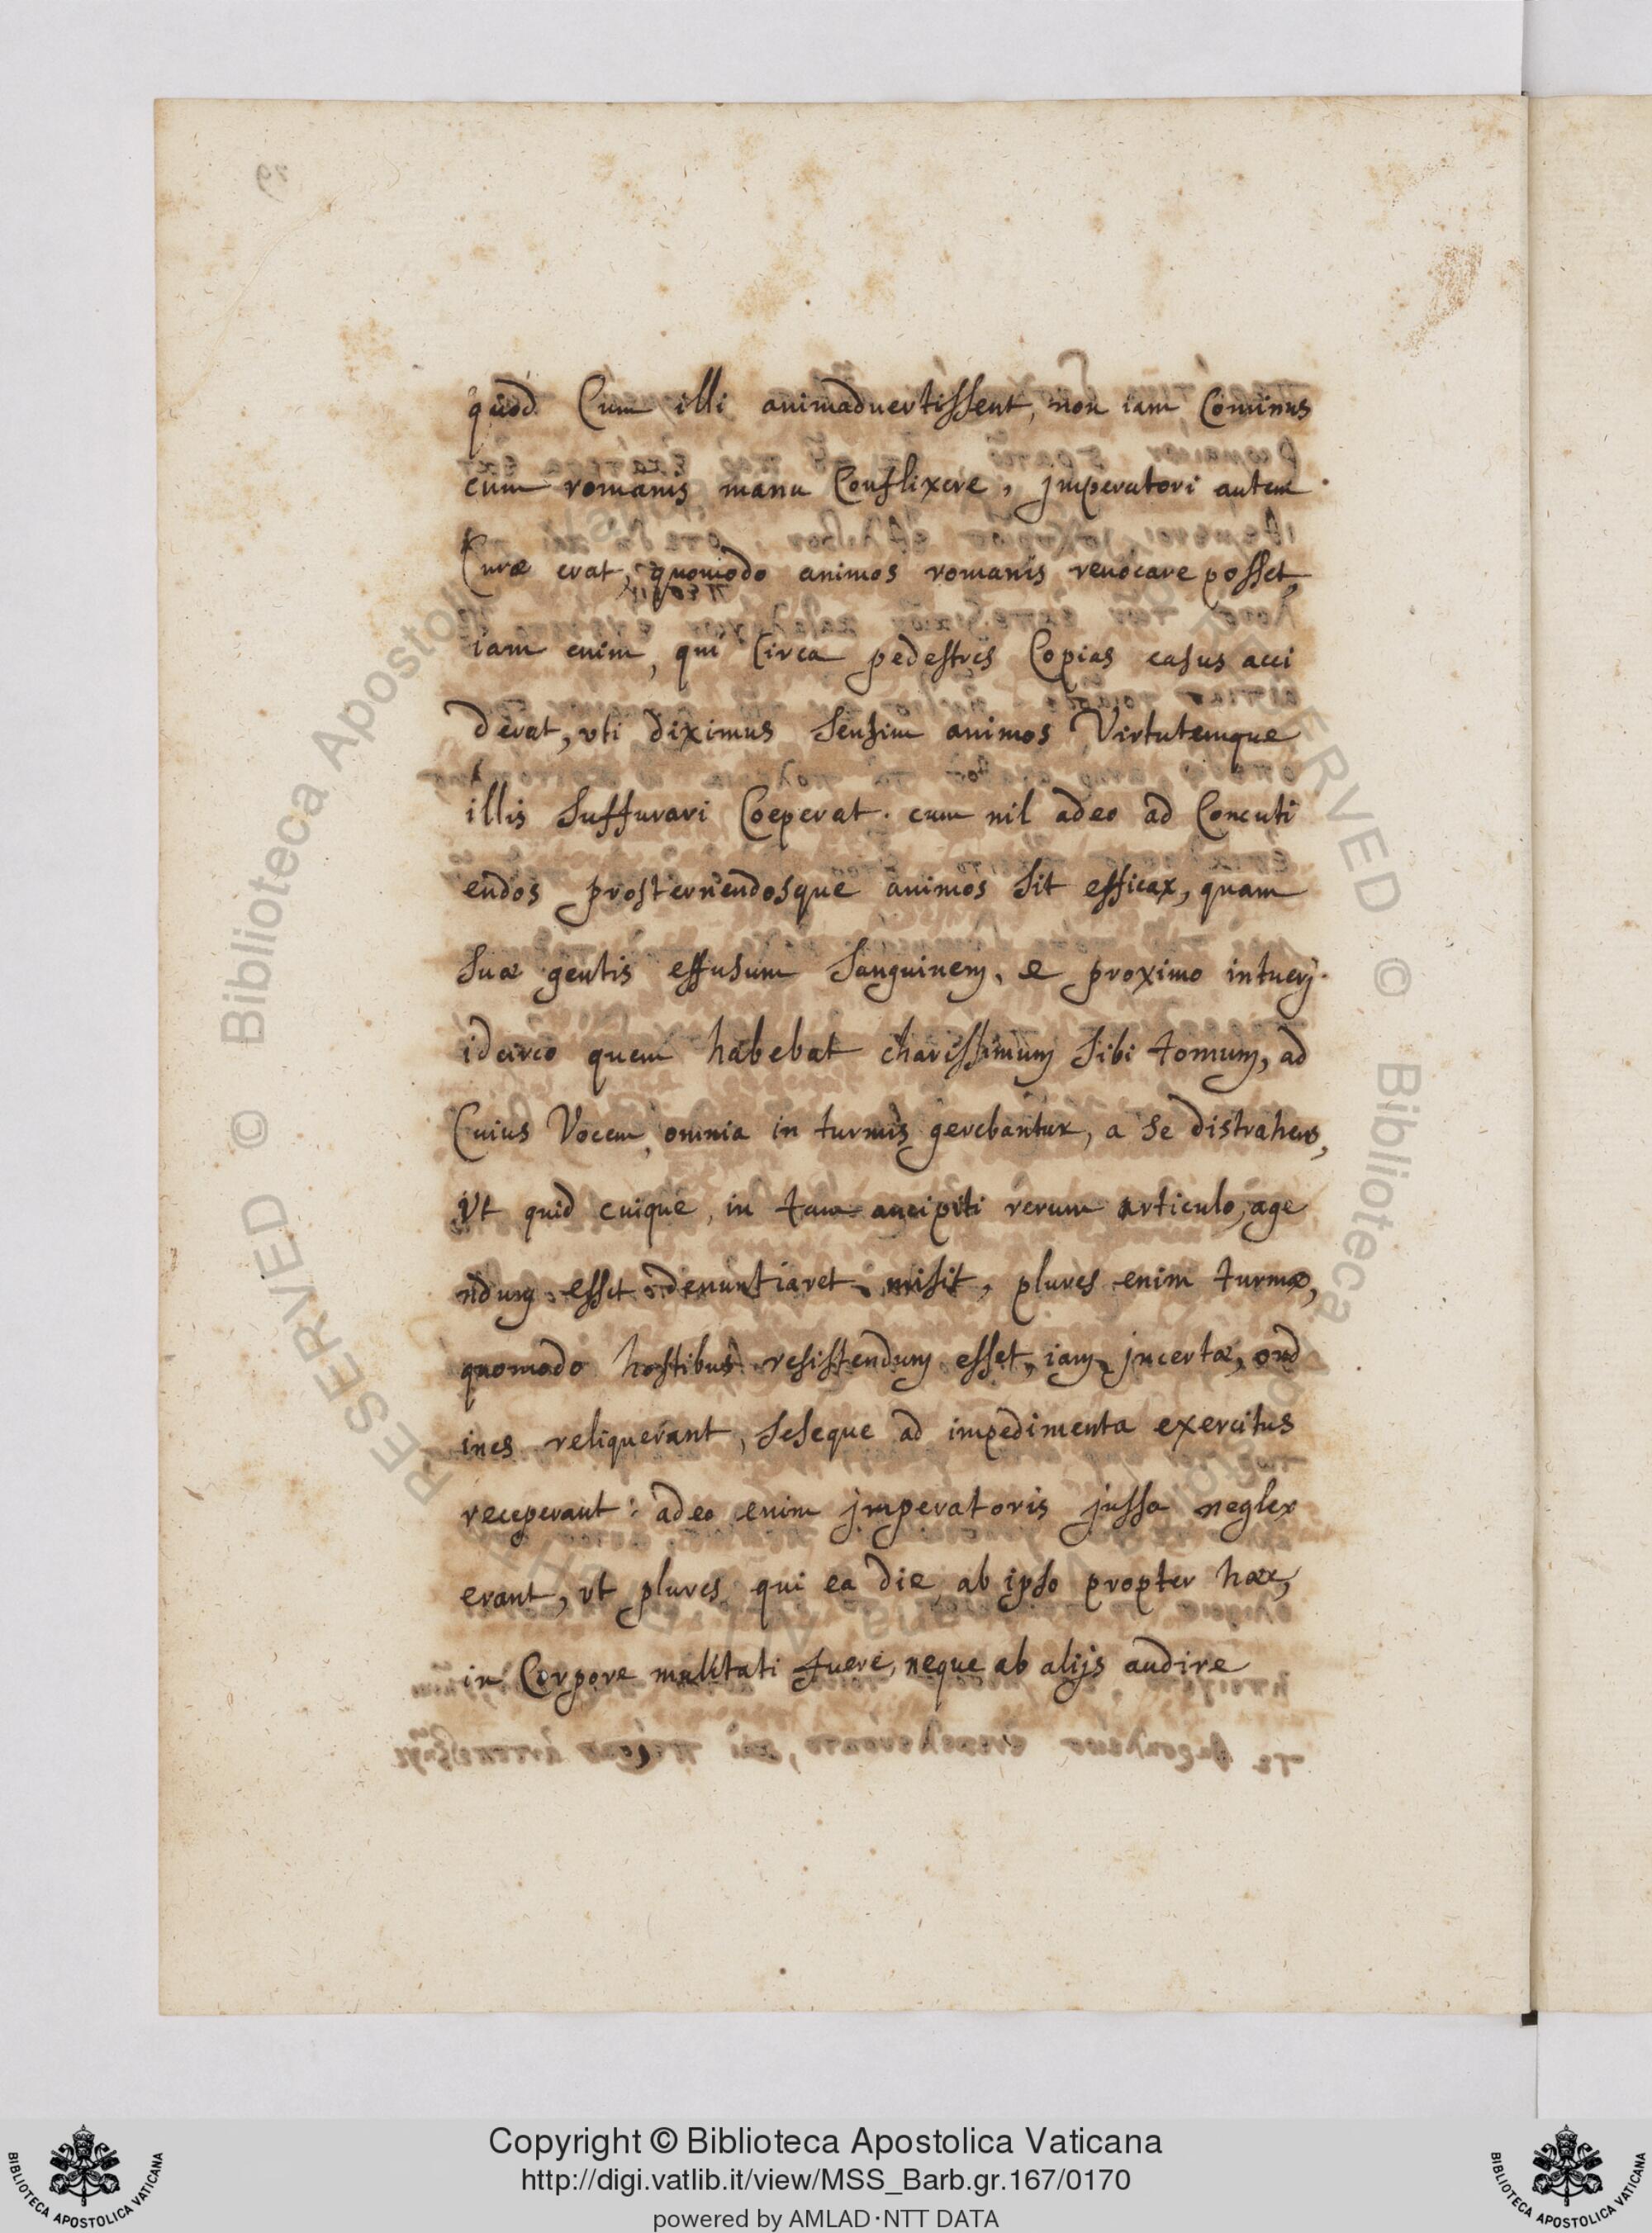 quod Cum illi animaduertissent, non iam Cominus
cum romanis manu Conflixere, jmperatori autem
Curæ erat, quomodo animos romanis reuocare posset,
iam enim, qui Circa pedestres Copias casus acci
derat, vti diximus sensim animos Virtutemque
illis suffurari Coeperat. cum nil adeo ad Concuti
endos prosternendosque animos sit efficax, quam
suæ gentis effusum sanguinem, e proximo intuerj.
idcirco quem habebat charissimum sibi tomum, ad
Cuius Vocem, omnia in turmis gerebantur, a se distrahens,
Vt quid cuique, in tam ancipiti rerum articulo, age
ndum esset denuntiaret, misit, plures enim turmæ,
quomodo hostibus resistendum esset, iam jncertæ, ord
ines reliquerant, seseque ad impedimenta exercitus
receperant: adeo enim jmperatoris jussa neglex
erant, vt plures qui ea die ab ipso propter hæc,
in Corpore mulctati fuere, neque ab alijs audire
RESERVED © Biblioteca Apostolica
Copyright © Biblioteca Apostolica Vaticana
http://digi.vatlib.it/view/MSS_Barb.gr.167/0170
powered by AMLAD·NTT DATA
BIBLIOTECA APOSTOLICA VATICANA
BIBLIOTECA APOSTOLICA VATICANA